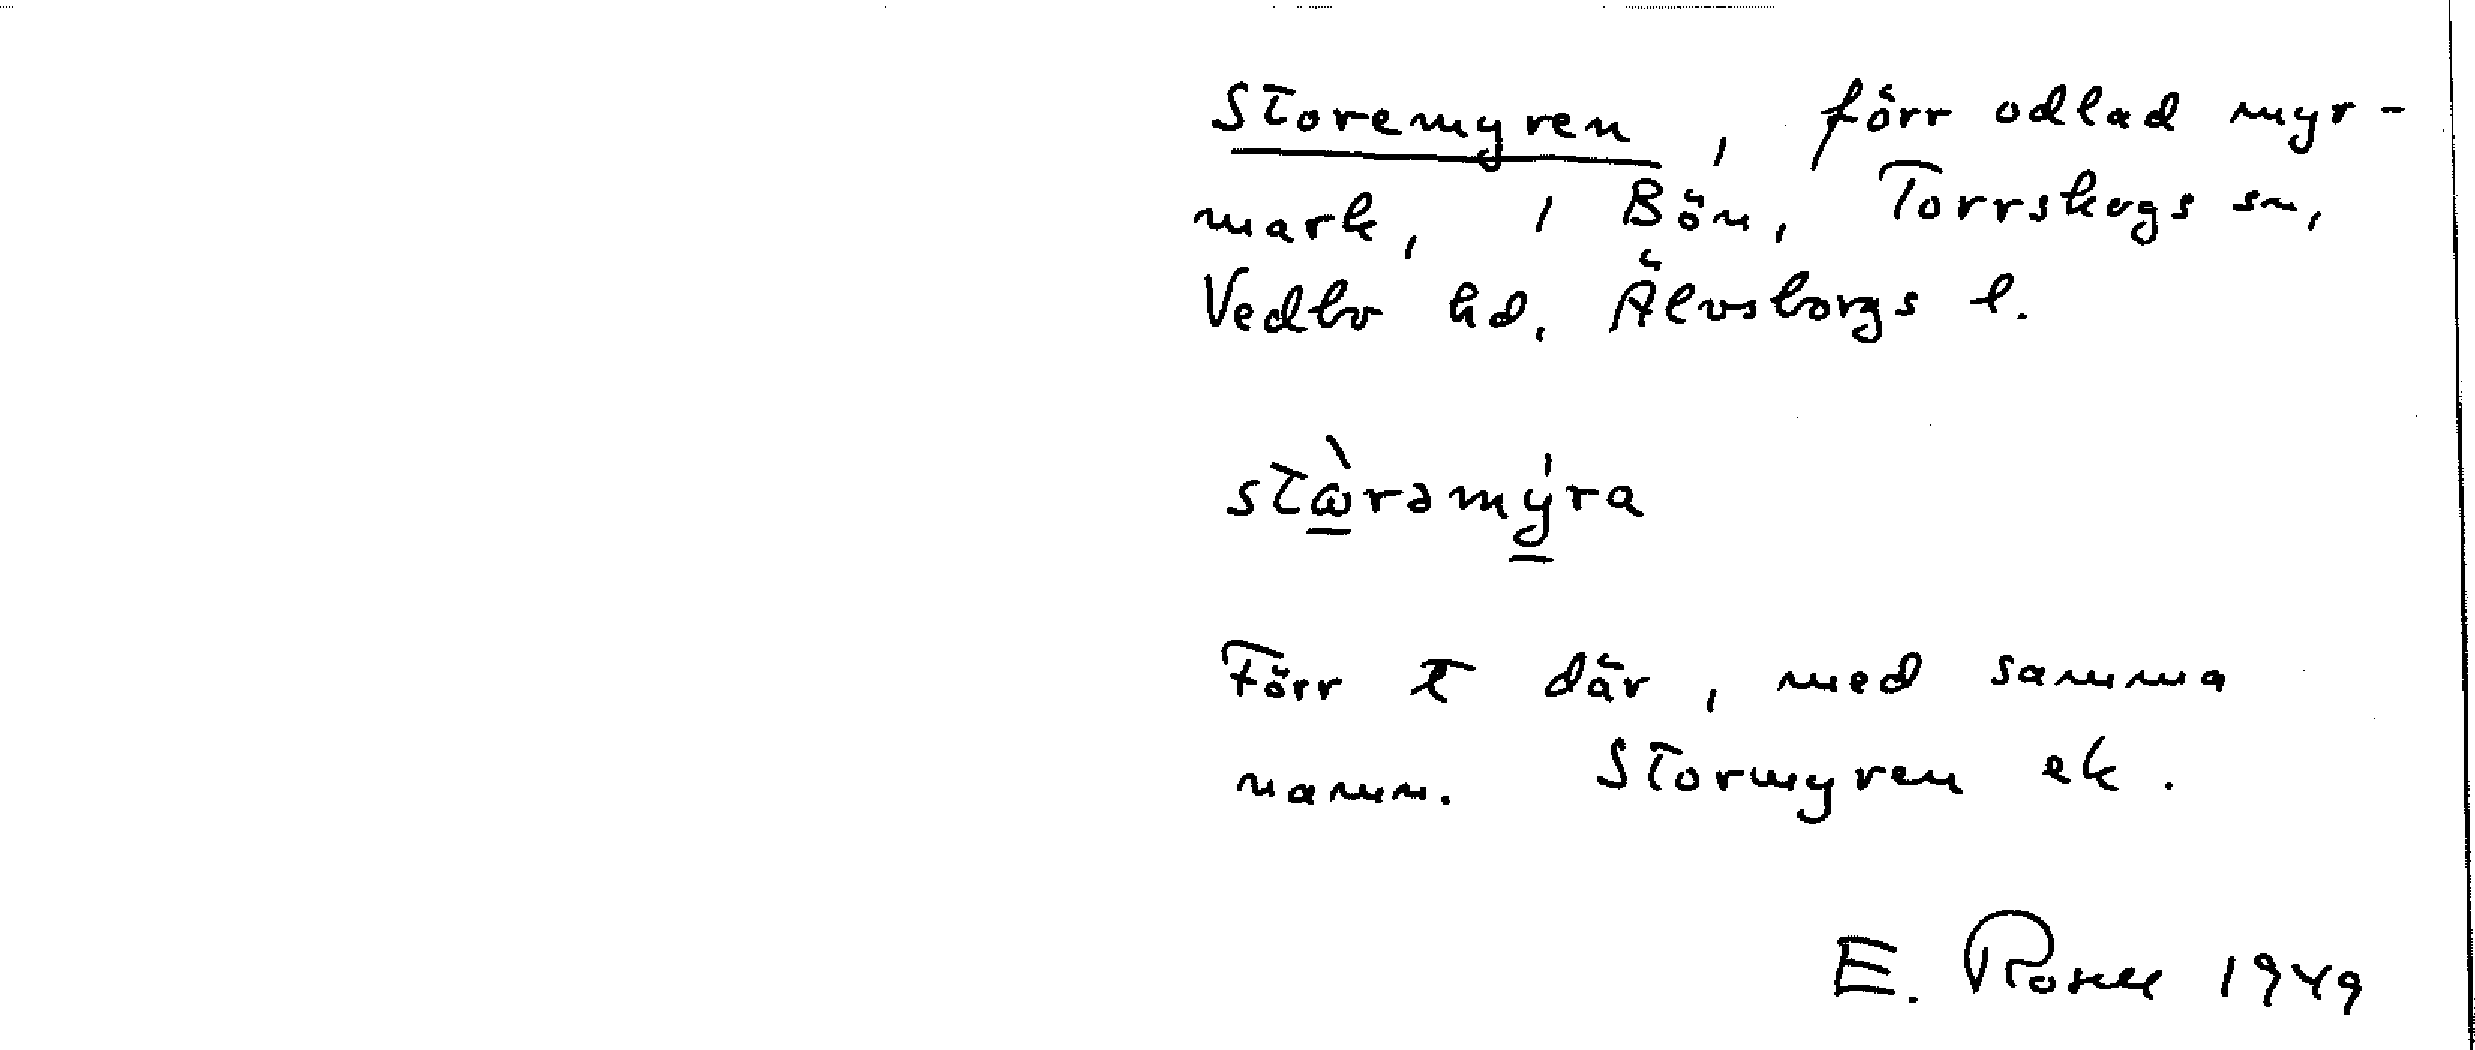 Storemyren, förr odlad myr-
mark, i Bön, Torrskogs sn,
Vedbo hd. Älvsborgs l.
stὼ̲rəmý̲ra
Förr t där, med samma
namn. Stormyren ek.
E. Rosell 1949